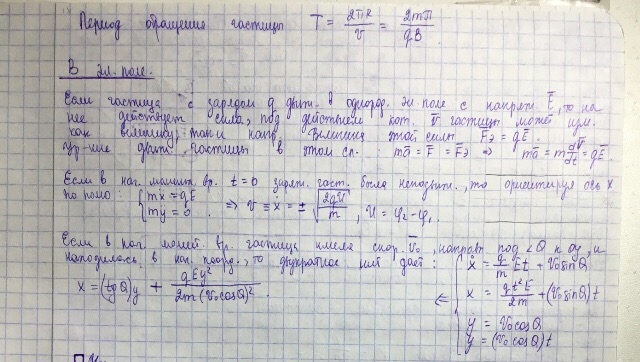 Период обращения частицы T = 2πR/v = 2mπ/qB
В эл. поле.
Если частица с зарядом q движ. в однород. эл поле с напряж. E̅, то на
нее действует сила, под действием кот. v̅ частицы может изм.
как величину, так и напр. Величина этой силы F̅э = qE̅.
Ур-ние движ. частицы в этом сл.: ma̅ = F̅ = F̅э ⇒ ma̅ = m dv̅/dt = qE̅.
Если в нач. момент вр. t=0 заряж. част. была неподвижн., то ориентируя ось x
по полю: { mẍ = qE
mÿ = 0 . ⇒ v ≡ ẋ = ± √(2qU/m) , U = φ₂ - φ₁.
Если в нач. момент. вр. частица имела скор. v̅₀, направл под ∠Q к оу, и
находилась в нач. коорд., то двукратное инт дает: { ẋ = q/m Et + v₀sinQ
x = (tgQ)y + qEy²/2m(v₀cosQ)² . ⇐ x = qt²E/2m + (v₀sinQ)t
ẏ = v₀cosQ
y = (v₀cosQ)t